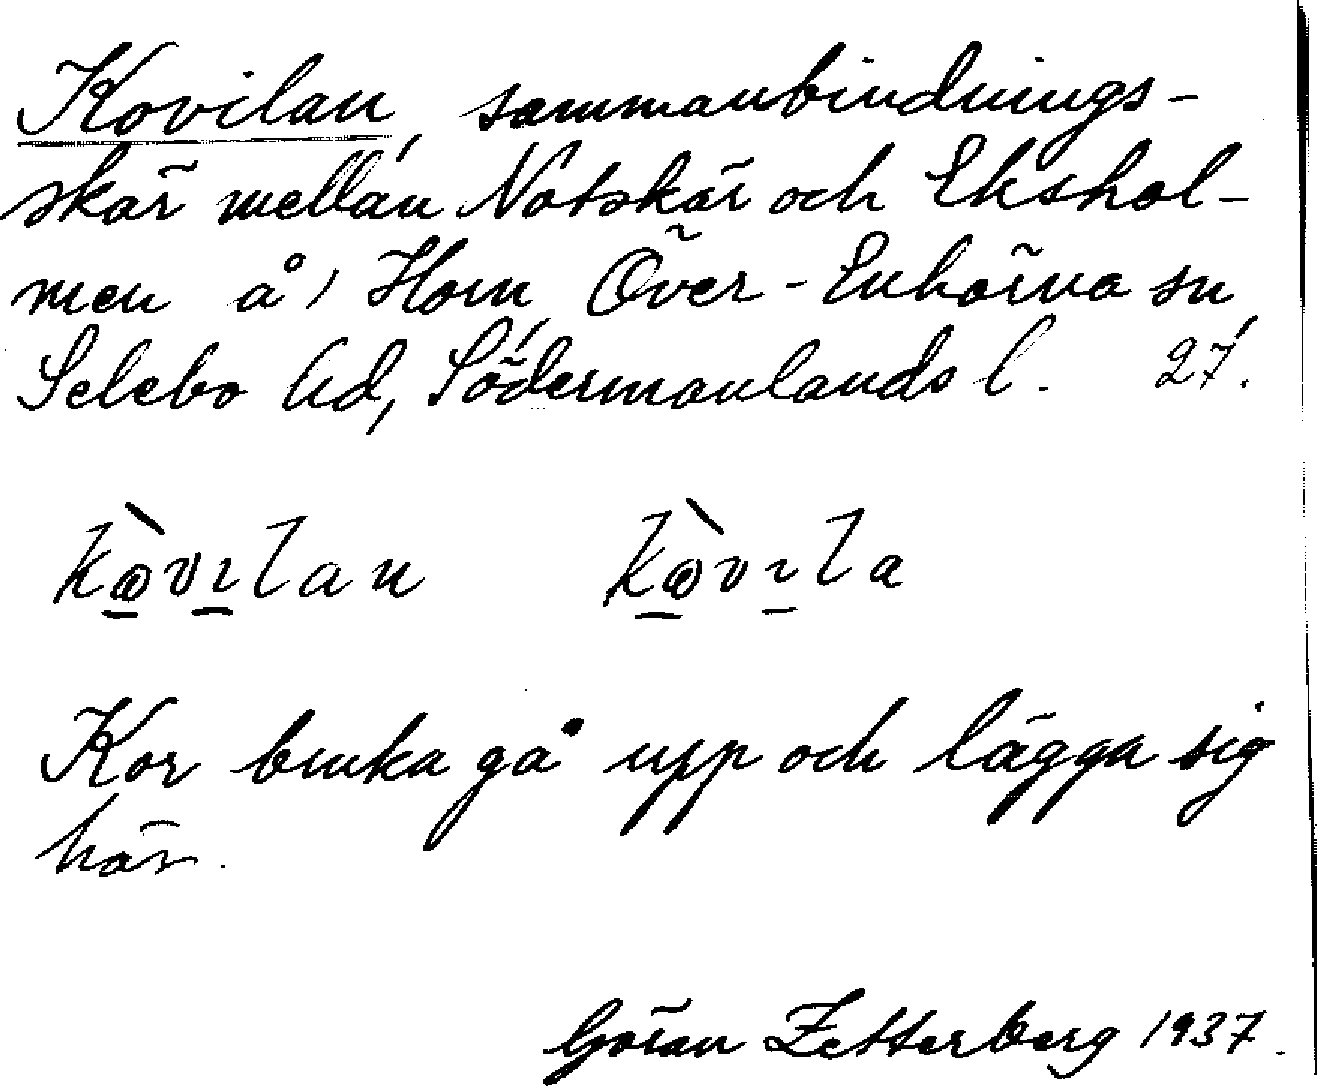 Kovilan, sammanbindnings-
skär mellan Notskär och Ekshol-
men å, Horn, Över-Enhörna sn,
Selebo hd, Södermanlands l. 27.
kòvılan kòvıla
Kor bruka gå upp och lägga sig
här.
Göran Zetterberg 1937.